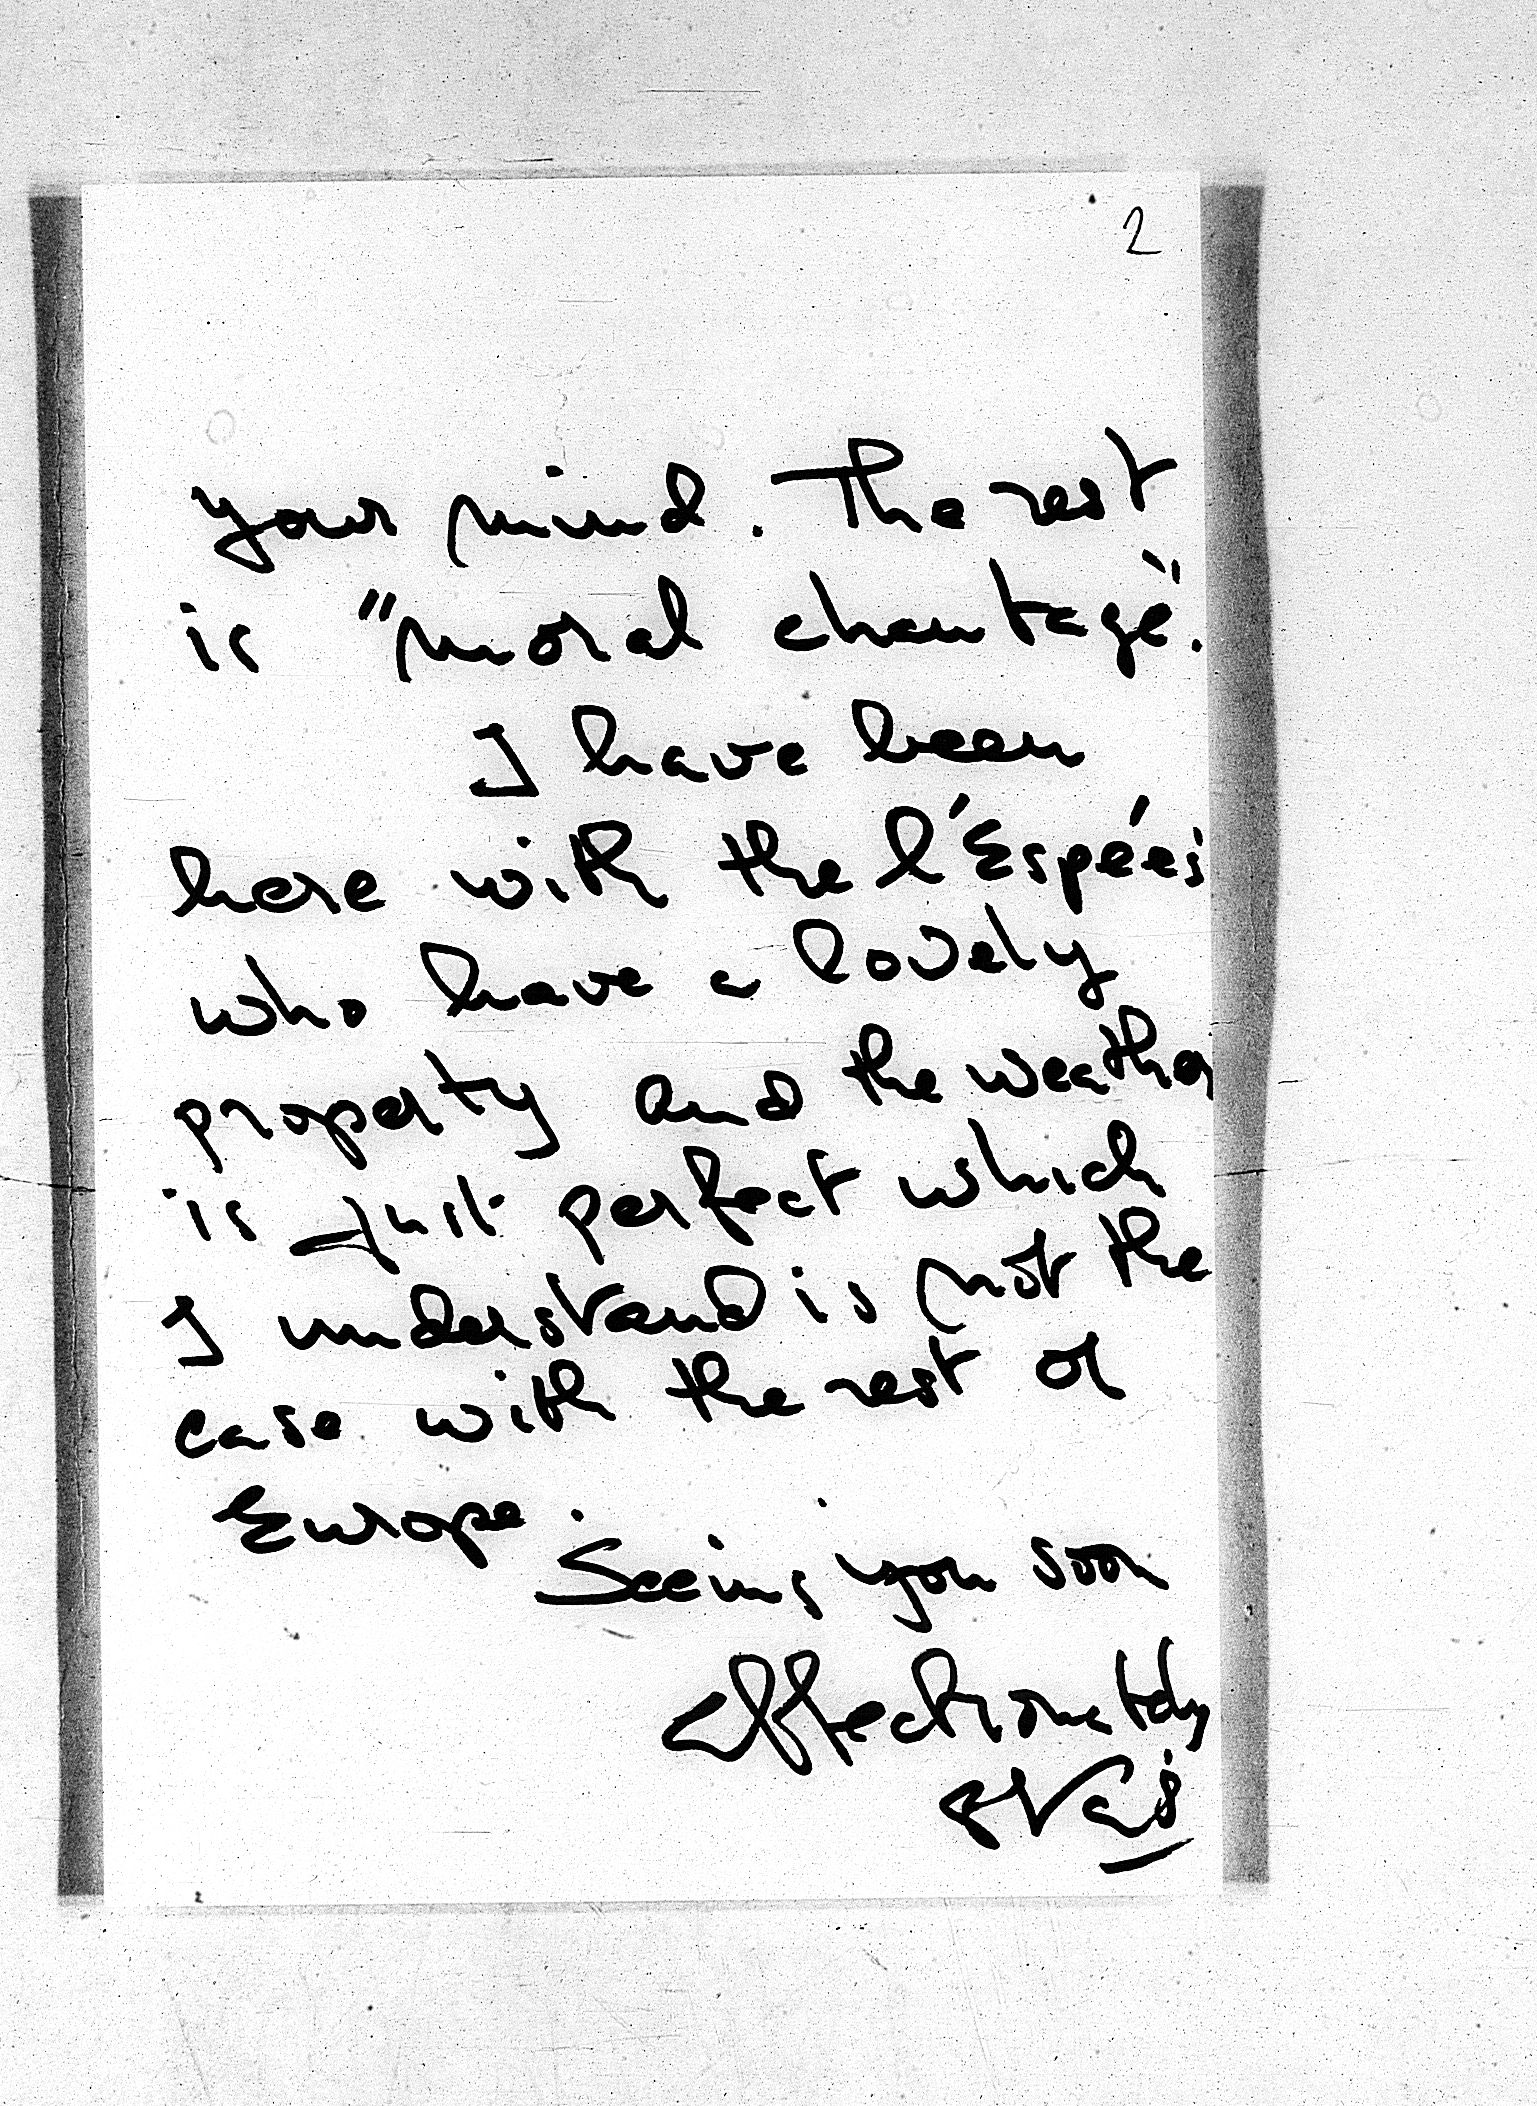 2
your mind. The rest
is "moral chantage".
I have been
here with the l'Espées
who have a lovely
property and the weather
is just perfect which
I understand is not the
case with the rest of
Europe.
Seeing you soon
affectionately